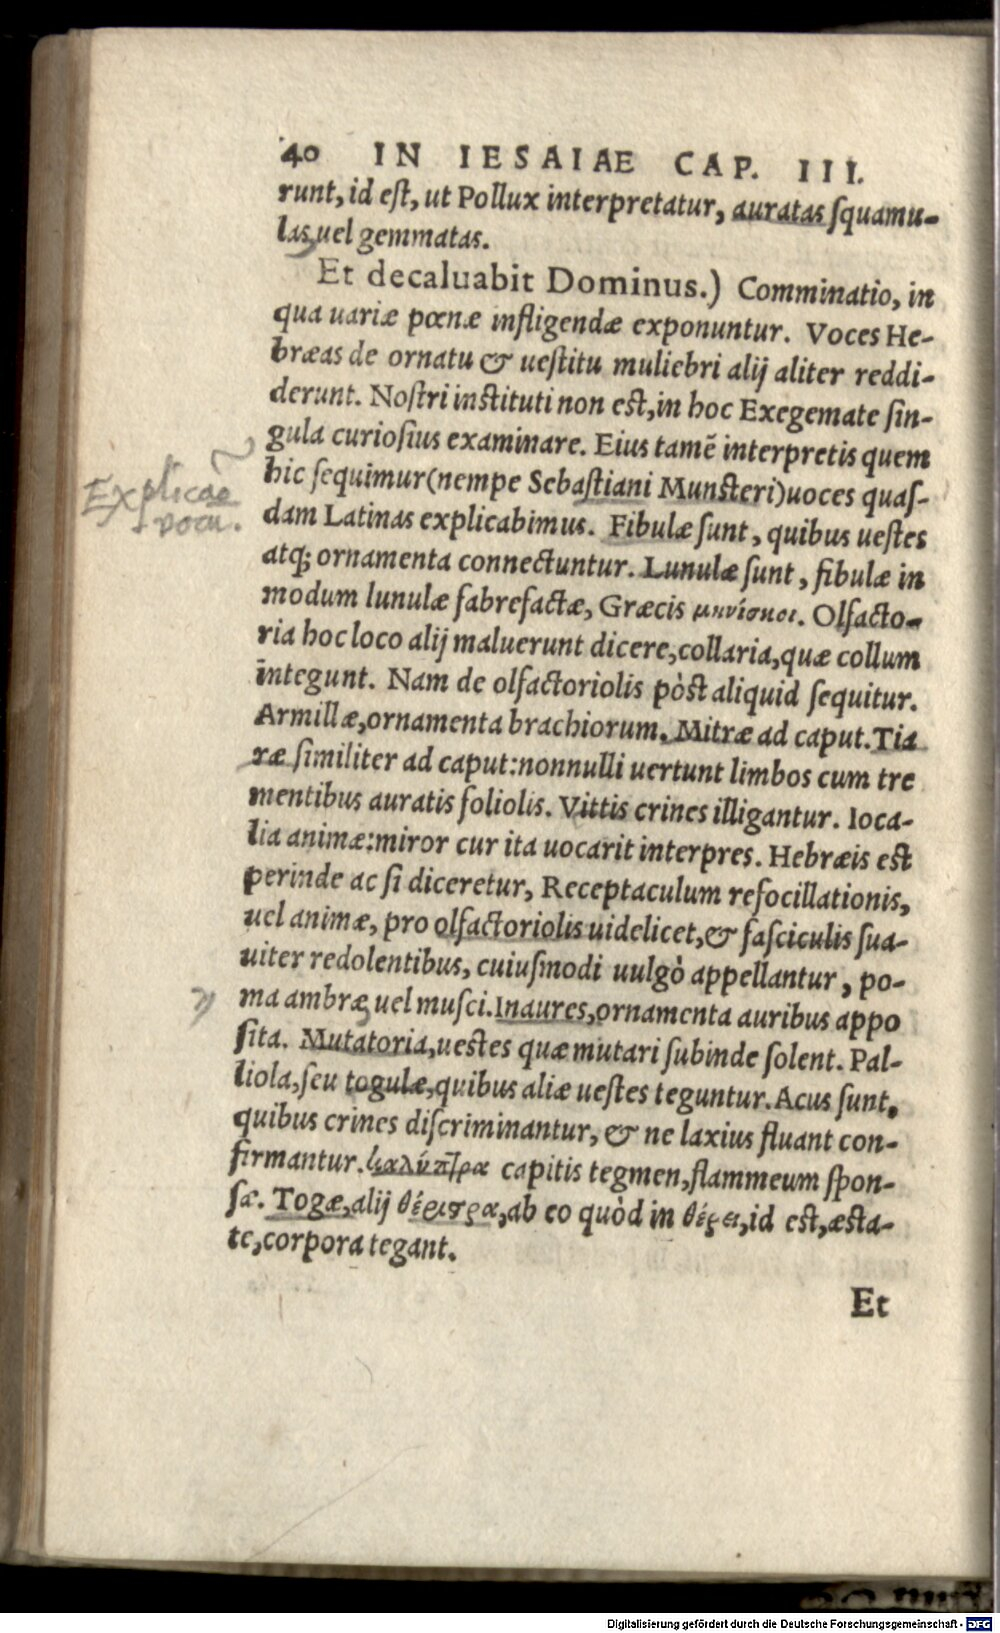 40 IN IESAIAE CAP. III.
runt, id eſt, ut Pollux interpretatur, auratas ſquamu-
las uel gemmatas.
Et decaluabit Dominus.) Comminatio, in
qua uariæ pœnæ infligendæ exponuntur. Voces He-
bræas de ornatu & ueſtitu muliebri alij aliter reddi-
derunt. Noſtri instituti non est, in hoc Exegemate ſin-
gula curioſius examinare. Eius tamẽ interpretis quem
hic ſequimur (nempe Sebaſtiani Munſteri) uoces quaſ-
Explicaõ
vocũ.
dam Latinas explicabimus. Fibulæ ſunt, quibus ueſtes
atq; ornamenta connectuntur. Lunulæ ſunt, fibulæ in
modum lunulæ fabrefactæ, Græcis μηνίσκοι. Olfacto-
ria hoc loco alij maluerunt dicere, collaria, quæ collum
integunt. Nam de olfactoriolis pòst aliquid ſequitur.
Armillæ, ornamenta brachiorum. Mitræ ad caput. Tia
ræ ſimiliter ad caput: nonnulli uertunt limbos cum tre
mentibus auratis foliolis. Vittis crines illigantur. Ioca-
lia animæ: miror cur ita uocarit interpres. Hebræis est
perinde ac ſi diceretur, Receptaculum refocillationis,
uel animæ, pro olfactoriolis uidelicet, & faſciculis ſua-
uiter redolentibus, cuiuſmodi uulgò appellantur, po-
ma ambræ uel muſci. Inaures, ornamenta auribus appo
ſita. Mutatoria, uestes quæ mutari ſubinde ſolent. Pal-
liola, ſeu togulæ, quibus aliæ ueſtes teguntur. Acus ſunt,
quibus crines diſcriminantur, & ne laxius fluant con-
firmantur. καλύπτρα capitis tegmen, flammeum ſpon-
ſæ. Togæ, alij θέριστρα, ab eo quòd in θέρει, id est, æsta-
te, corpora tegant.
Et
Digitalisierung gefördert durch die Deutsche Forschungsgemeinschaft - DFG